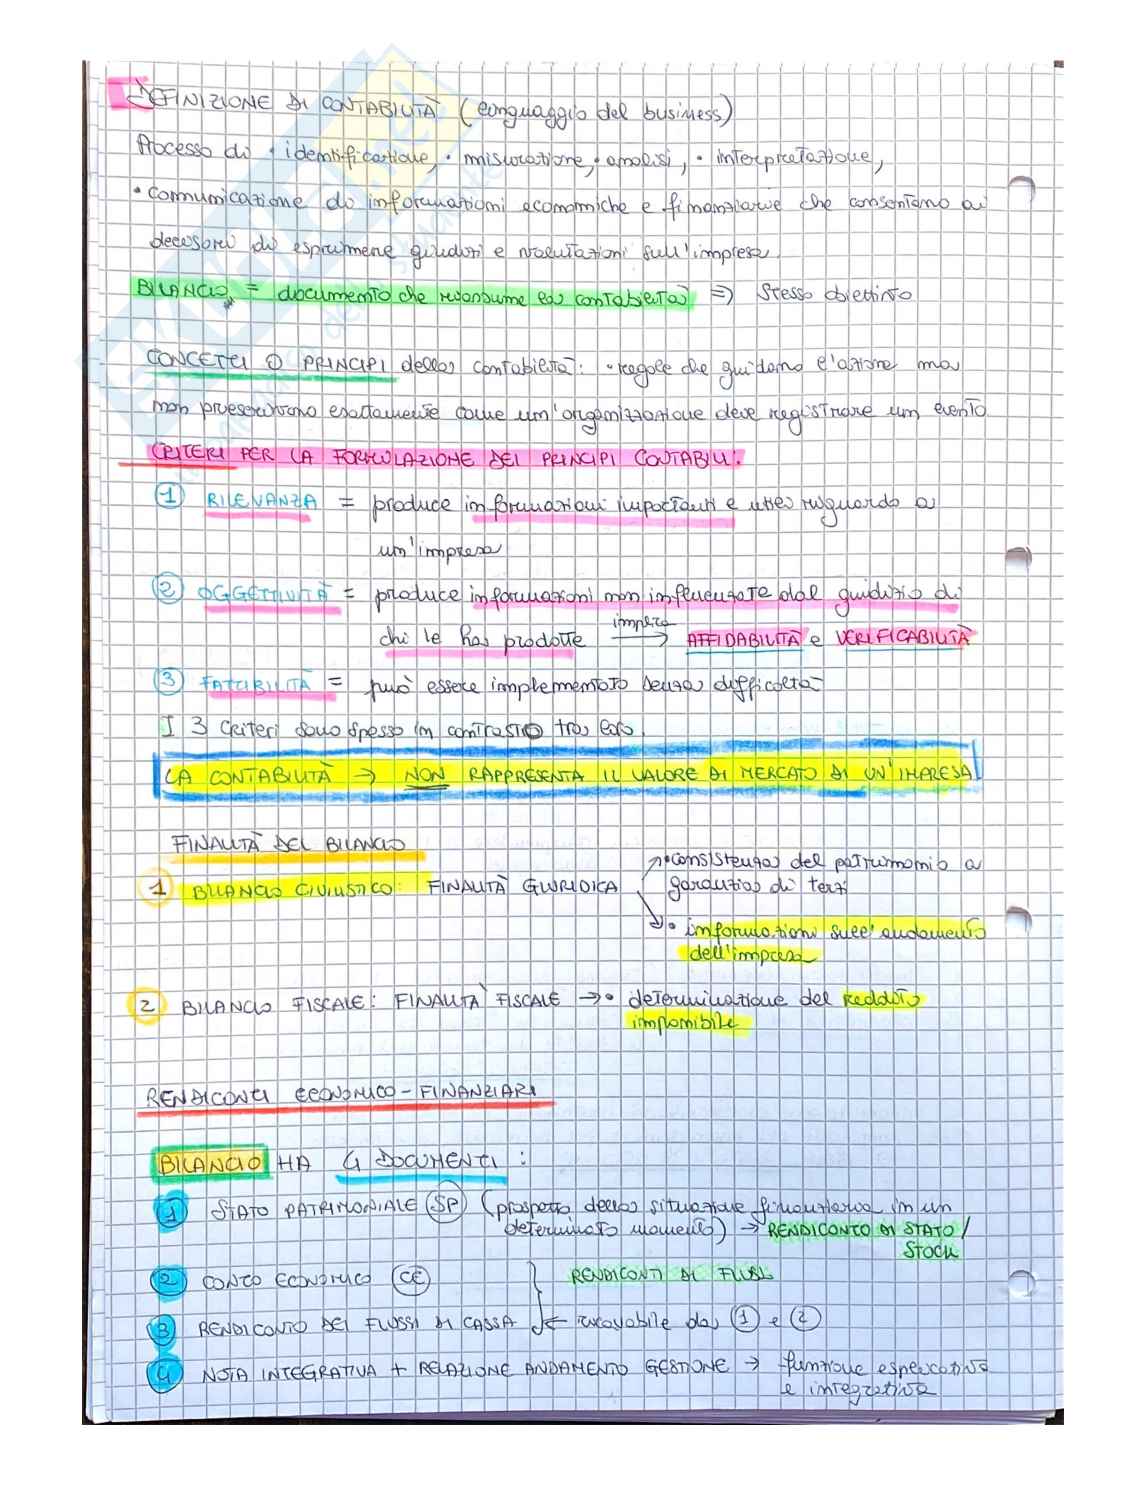 DEFINIZIONE DI CONTABILITÀ (linguaggio del business)
Processo di • identificazione, • misurazione, • analisi, • interpretazione,
• comunicazione di informazioni economiche e finanziarie che consentano ai
decisori di esprimere giudizi e valutazioni sull'impresa.
BILANCIO = documento che riassume la contabilità => stesso obiettivo
CONCETTI O PRINCIPI della contabilità: • regole che guidano l'azione ma
non prescrivono esattamente come un'organizzazione deve registrare un evento
CRITERI PER LA FORMULAZIONE DEI PRINCIPI CONTABILI:
1 RILEVANZA = produce informazioni importanti e utili riguardo a
un'impresa
2 OGGETTIVITÀ = produce informazioni non influenzate dal giudizio di
chi le ha prodotte implica → AFFIDABILITÀ e VERIFICABILITÀ
3 FATTIBILITÀ = può essere implementato senza difficoltà
I 3 criteri sono spesso in contrasto tra loro.
LA CONTABILITÀ → NON RAPPRESENTA IL VALORE DI MERCATO DI UN'IMPRESA
FINALITÀ DEL BILANCIO
1 BILANCIO CIVILISTICO: FINALITÀ GIURIDICA
• consistenza del patrimonio a
garanzia di terzi
• informazioni sull'andamento
dell'impresa
2 BILANCIO FISCALE: FINALITÀ FISCALE → • determinazione del reddito
imponibile
RENDICONTI ECONOMICO-FINANZIARI
BILANCIO HA 4 DOCUMENTI:
1 STATO PATRIMONIALE SP (prospetto della situazione finanziaria in un
determinato momento) → RENDICONTO DI STATO/
STOCK
2 CONTO ECONOMICO CE } RENDICONTI DI FLUSSI
3 RENDICONTO DEI FLUSSI DI CASSA ← ricavabile da 1 e 2
4 NOTA INTEGRATIVA + RELAZIONE ANDAMENTO GESTIONE → funzione esplicativa
e integrativa